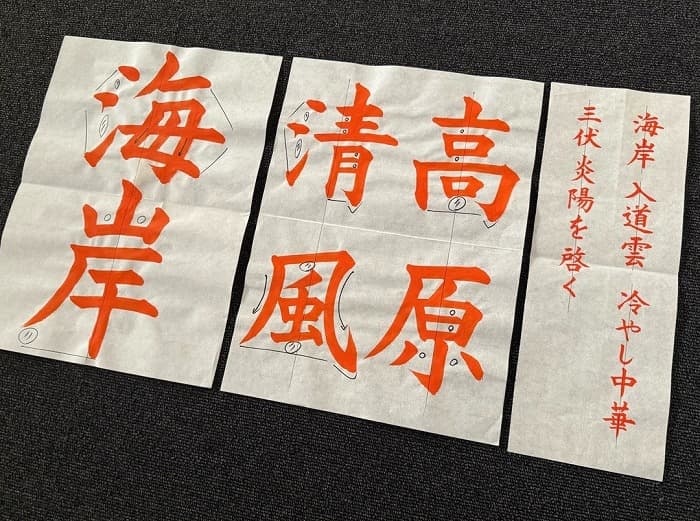 海岸
高原
清風
海岸 入道雲 冷やし中華
三伏炎陽を啓く